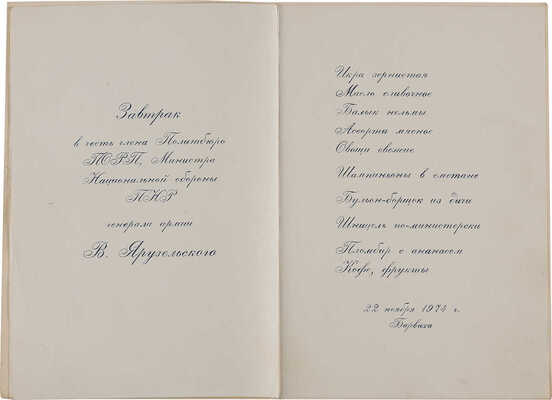 Завтрак
в честь члена Политбюро
ПОРП, Министра
Национальной обороны
ПНР
генерала армии
В. Ярузельского
Икра зернистая
Масло сливочное
Балык нельмы
Ассорти мясное
Овощи свежие
Шампиньоны в сметане
Бульон-борщок из дичи
Шницель по-министерски
Пломбир с ананасом
Кофе, фрукты
22 ноября 1974 г.
Барвиха